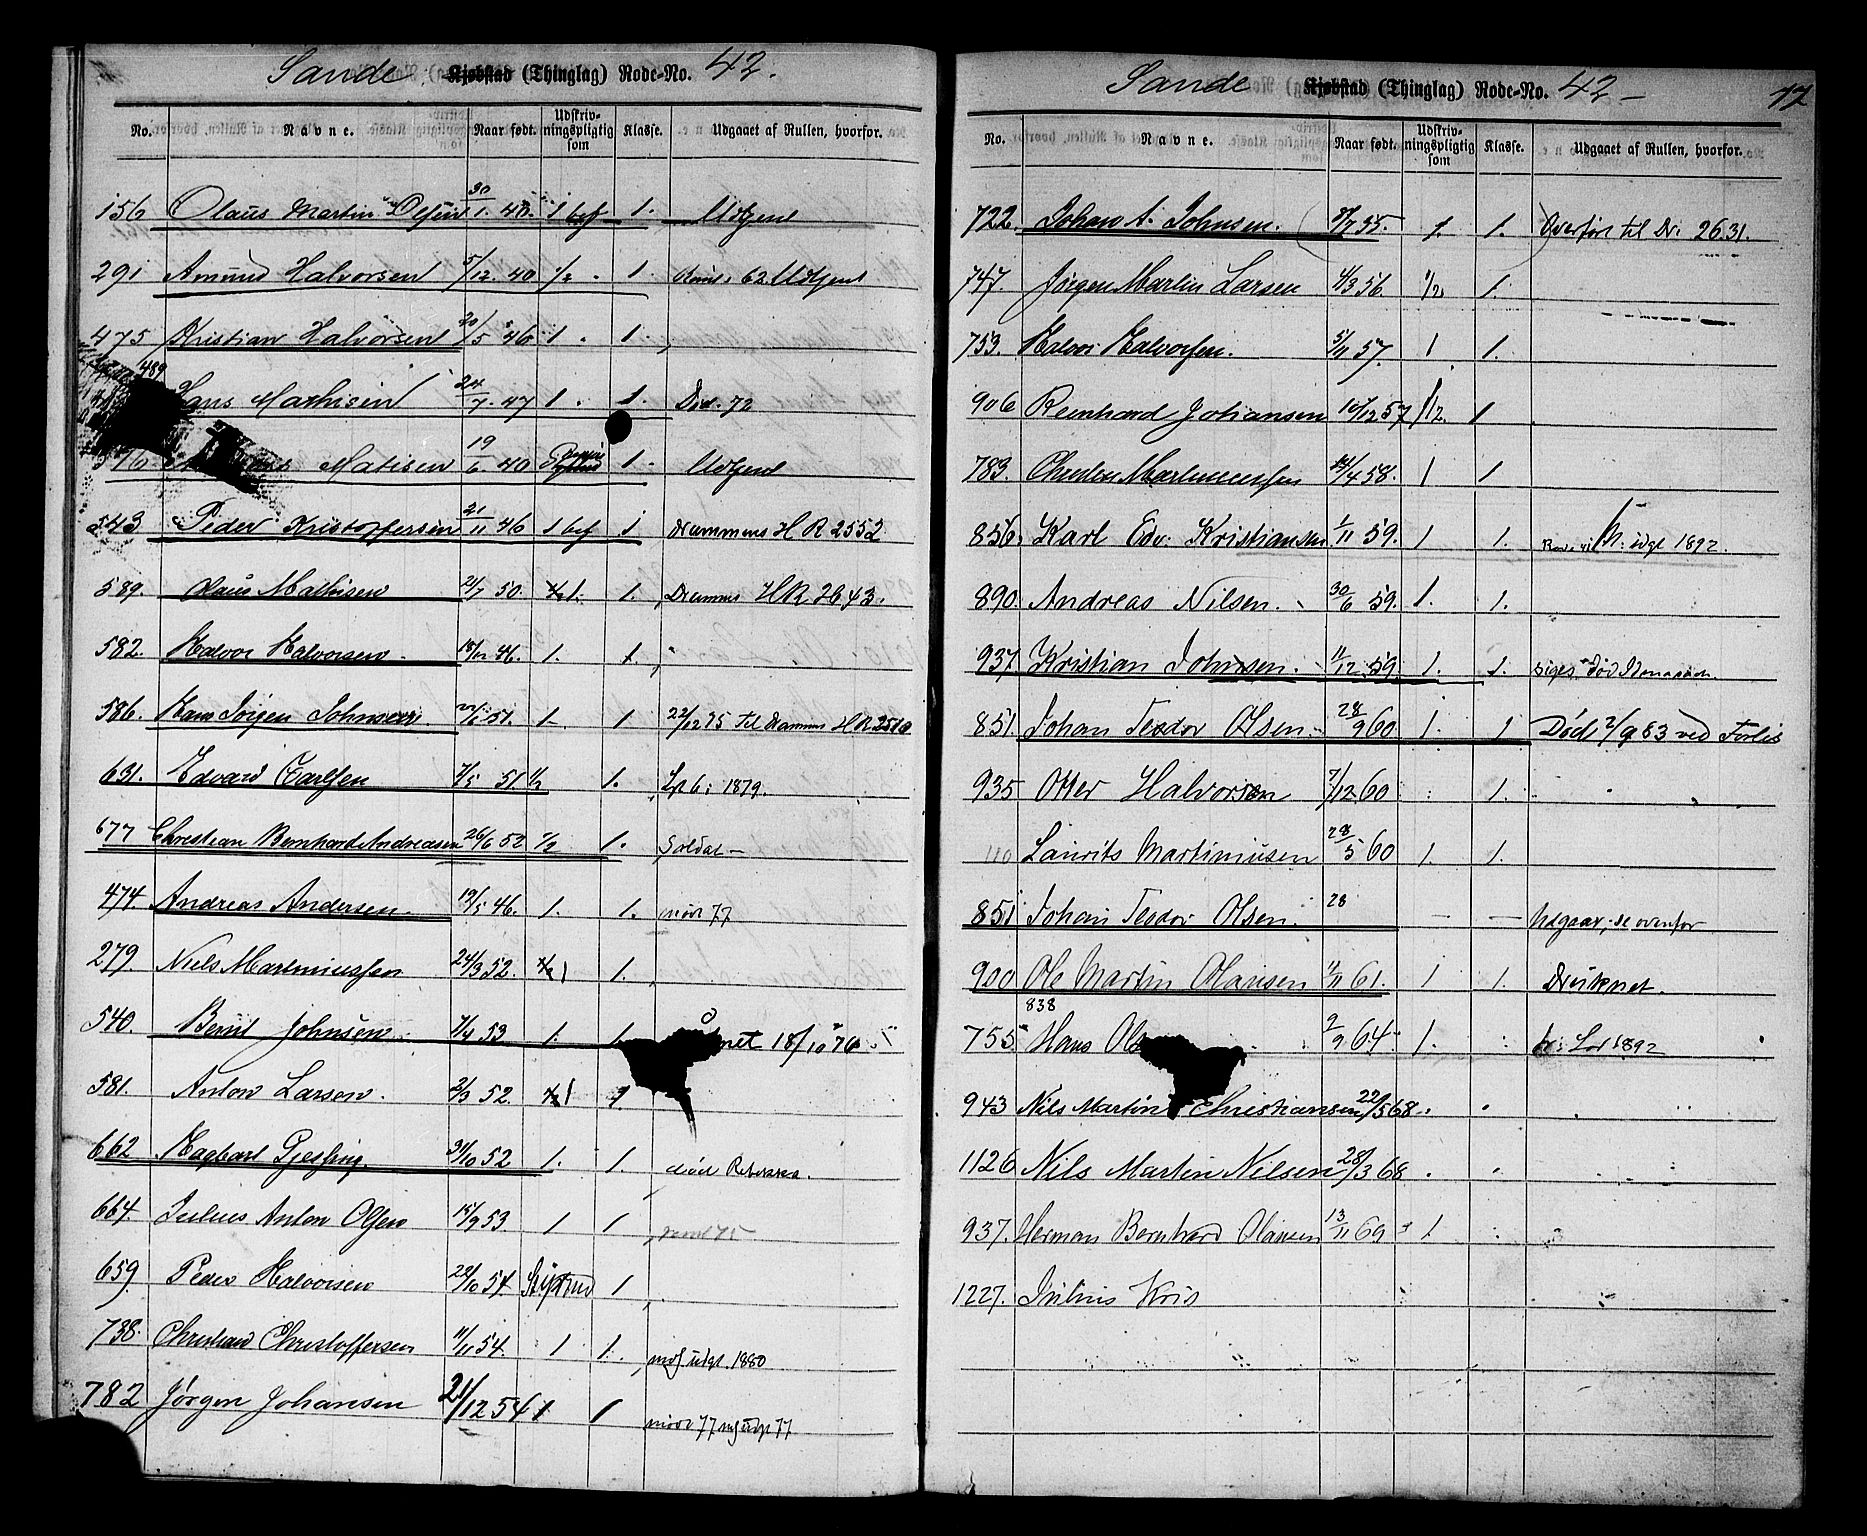 Sande Kjøbstad (Thinglag) Rode-No. 42.
No. Navne. Naar født. Udskrivningspligtig som Klasse. Udgaaet af Rullen, hvorfor.
156 Olaus Martin 30/1. 40. 1 bef 1. Udgent
291 Amund Halvorsen 5/12. 40 1/2 1. 62 Udgent
475 Kristian Halvorsen 20/5 46 1 1.
489 Hans Mathisen 24/7. 47 1 1. Død. 72
Matisen 19/6 40 1. Udgent
543 Peder Kristoffersen 21/11 46 1 bef 1 Drammens H R 2552
589. Olaus Mathisen 21/7 50. 1. 1. Drammens HR 2643.
582. Halvor Halvorsen 18/12 46. 1. 1.
586. Hans Jörgen Johnsen 51. 1. 1 22/12 75 til Drammens H R 2570
631. Edvard Carlsen 7/5 51. 1/2 1. 1879.
677 Christian Bernhard Andreasen 26/6 52 1/2 1. Soldat
474. Andreas Andersen 19/5 46. 1. 1. 77
279. Niels Martiniussen 24/3 52. 1 1.
540. Bernt Johnsen 7/4 53 1. 1. 18/10 76
581. Anton Larsen. 2/3 52. 1 1.
662 Hagbart Gjessing 31/10 52 1. 1.
664. Julius Anton Olsen 15/9 53 1 1
659. Peder Halvorsen 22/10 54. 1
738. Christian Christoffersen 11/11 54. 1 1. udgt. 1880
782 Jørgen Johansen 21/12 54 1 1 77 udgt 77
Sande Kjøbstad (Thinglag) Rode-No. 42 - 77
No. Navne. Naar født. Udskrivningspligtig som Klasse. Udgaaet af Rullen, hvorfor.
722. Johan A. Johnsen. 55. 1. 1. Overført til Dr. 2631.
747. Jörgen Martin Larsen 4/3 56. 1/2 1.
753. Halvor Halvorsen. 5/11 57. 1 1.
906 Reinhard Johansen 10/12 57 1/2. 1
783. Martiniussen 14/4 58. 1 1
856. Karl Edv. Kristiansen 1/11 59. 1 1. udgt 1892.
890. Andreas Nilsen. 30/6 59. 1. 1.
937. Kristian Johnsen. 11/12 59. 1. 1. siges død
851. Johan Teodor Olsen 28/9 60 1. 1 Død 2/9 83 ved Forlis
935 Otter Halvorsen 7/12 60 1.
Laurits Martiniusen 28/5 60 1. 1.
851 Johan Teodor Olsen. 28 — — Udgaar, se ovenfor
900 Ole Martin Olausen 11/11 61. 1 1. Druknet.
838
755 Hans Ols 2/9 64. 1. 1892
943 Nils Martin Christiansen 22/5 68.
1126 Nils Martin Nilsen 28/3 68
937. Herman Bernhard Olausen 13/11 69 1
1227. Julius Kris